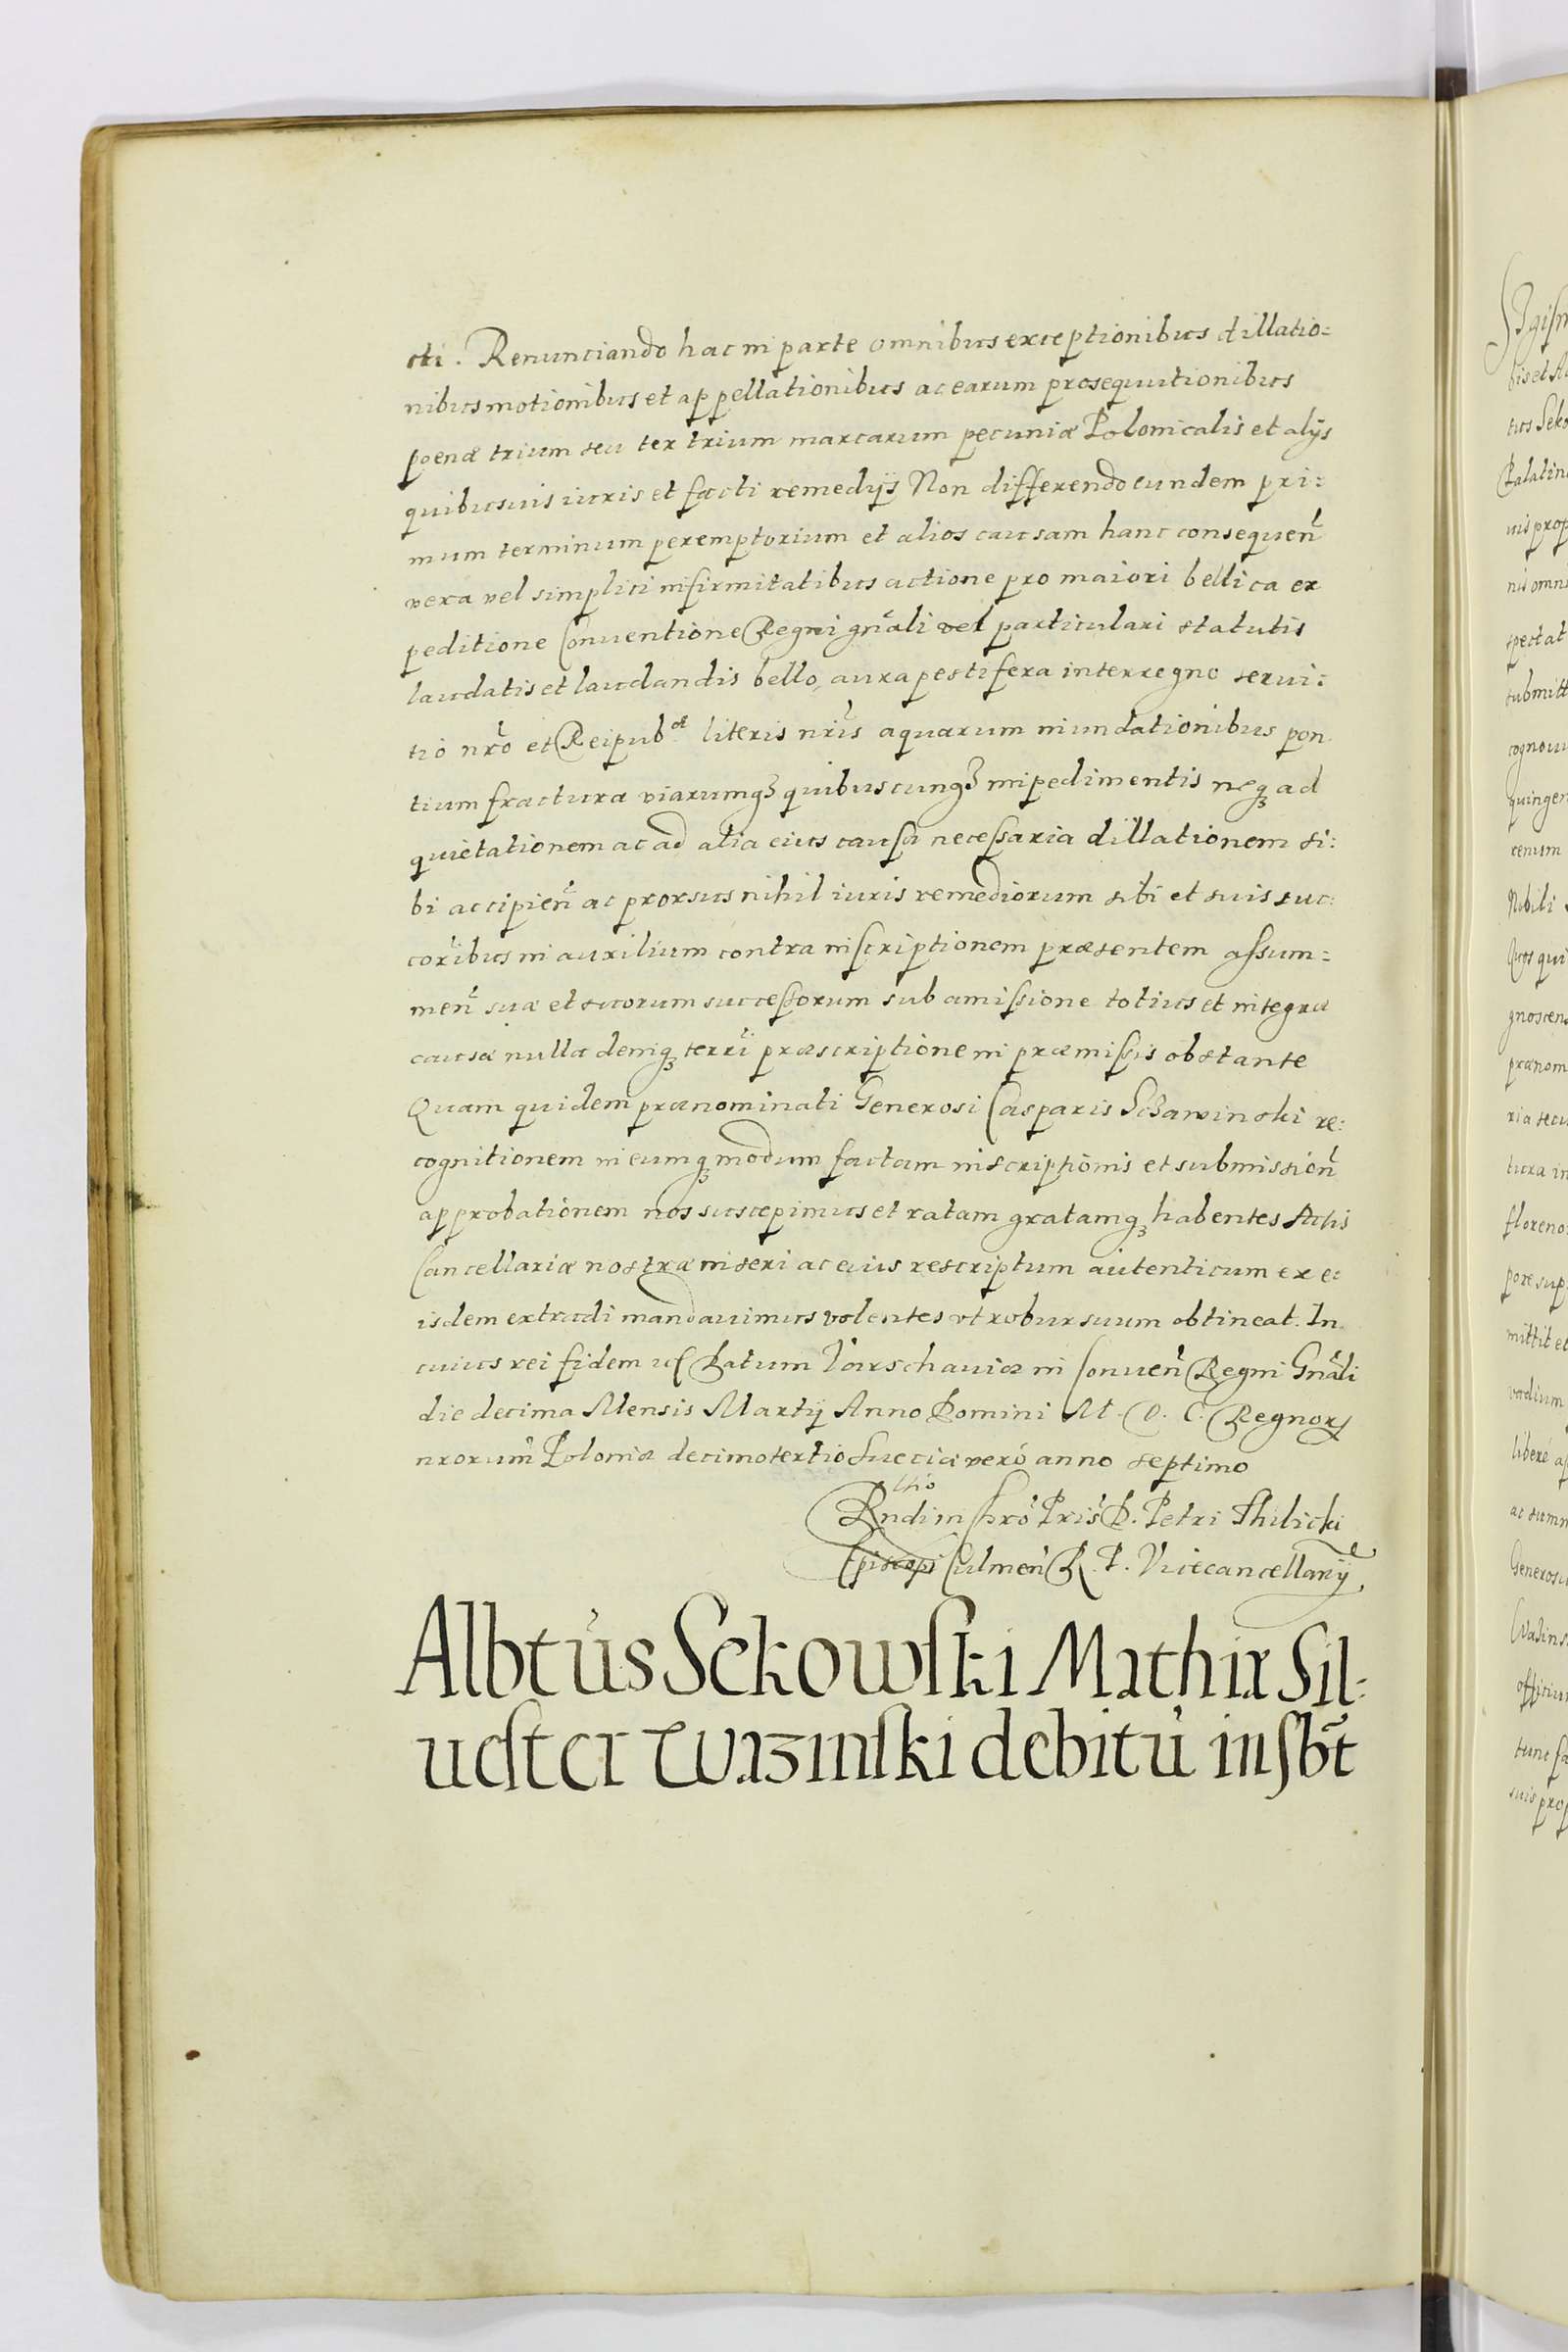 cti. Renunciando hac in parte omnibus exceptionibus dillatio=
nibus motionibus et appellationibus ac earum prosequutionibus
poenæ trium seu ter trium marcarum pecuniæ Polonicalis et alijs
quibusuis iuris et facti remedijs Non differendo eundem pri:
mum terminum peremptorium et alios causam hanc consequen̄
vera vel simplici infirmitatibus actione pro maiori bellica ex
peditione Conuentione Regni gn̄ali vel particulari statutis
laudatis et laudandis bello, aura pestifera interregno serui:
tio nr̄o et Reipubæ literis nr̄is aquarum inundationibus pon
tium fractura viarumqꝫ quibuscunqꝫ impedimentis neqꝫ ad
quietationem ac ad alia eius causæ necessaria dillationem si:
bi accipien̄ ac prorsus nihil iuris remediorum sibi et suis suc:
cor̄ibus in auxilium contra inscriptionem præsentem assum=
men̄ suæ et suorum successorum sub amissione totius et integræ
causæ nulla deniqꝫ terr̄i præscriptione in præmissis obstante
Quam quidem prænominati Generosi Casparis Sczawinski re:
cognitionem in eumqꝫ modum factam inscriptionis et submission̄
approbationem nos suscepimus et ratam gratamqꝫ habentes Actis
Cancellariæ nostræ inseri ac eius rescriptum autenticum ex e:
isdem extradi mandauimus volentes vt robur suum obtineat. In
cuius rei fidem uſ Datum Varschauiæ in Conuen̄ Regni Gn̄ali
die decima Mensis Martij Anno Domini M. D. C. Regnorꝝ
nrorum̄ Poloniæ decimotertio Sueciæ verò anno septimo
Rndi in Chrō Pris̄ D. Petri Thilicki
Episcopi Culmen̄ R. P. Vicecancellarij
Albtus Sekowski Mathiæ Sil:
uester Wazinski debitū insbt̄